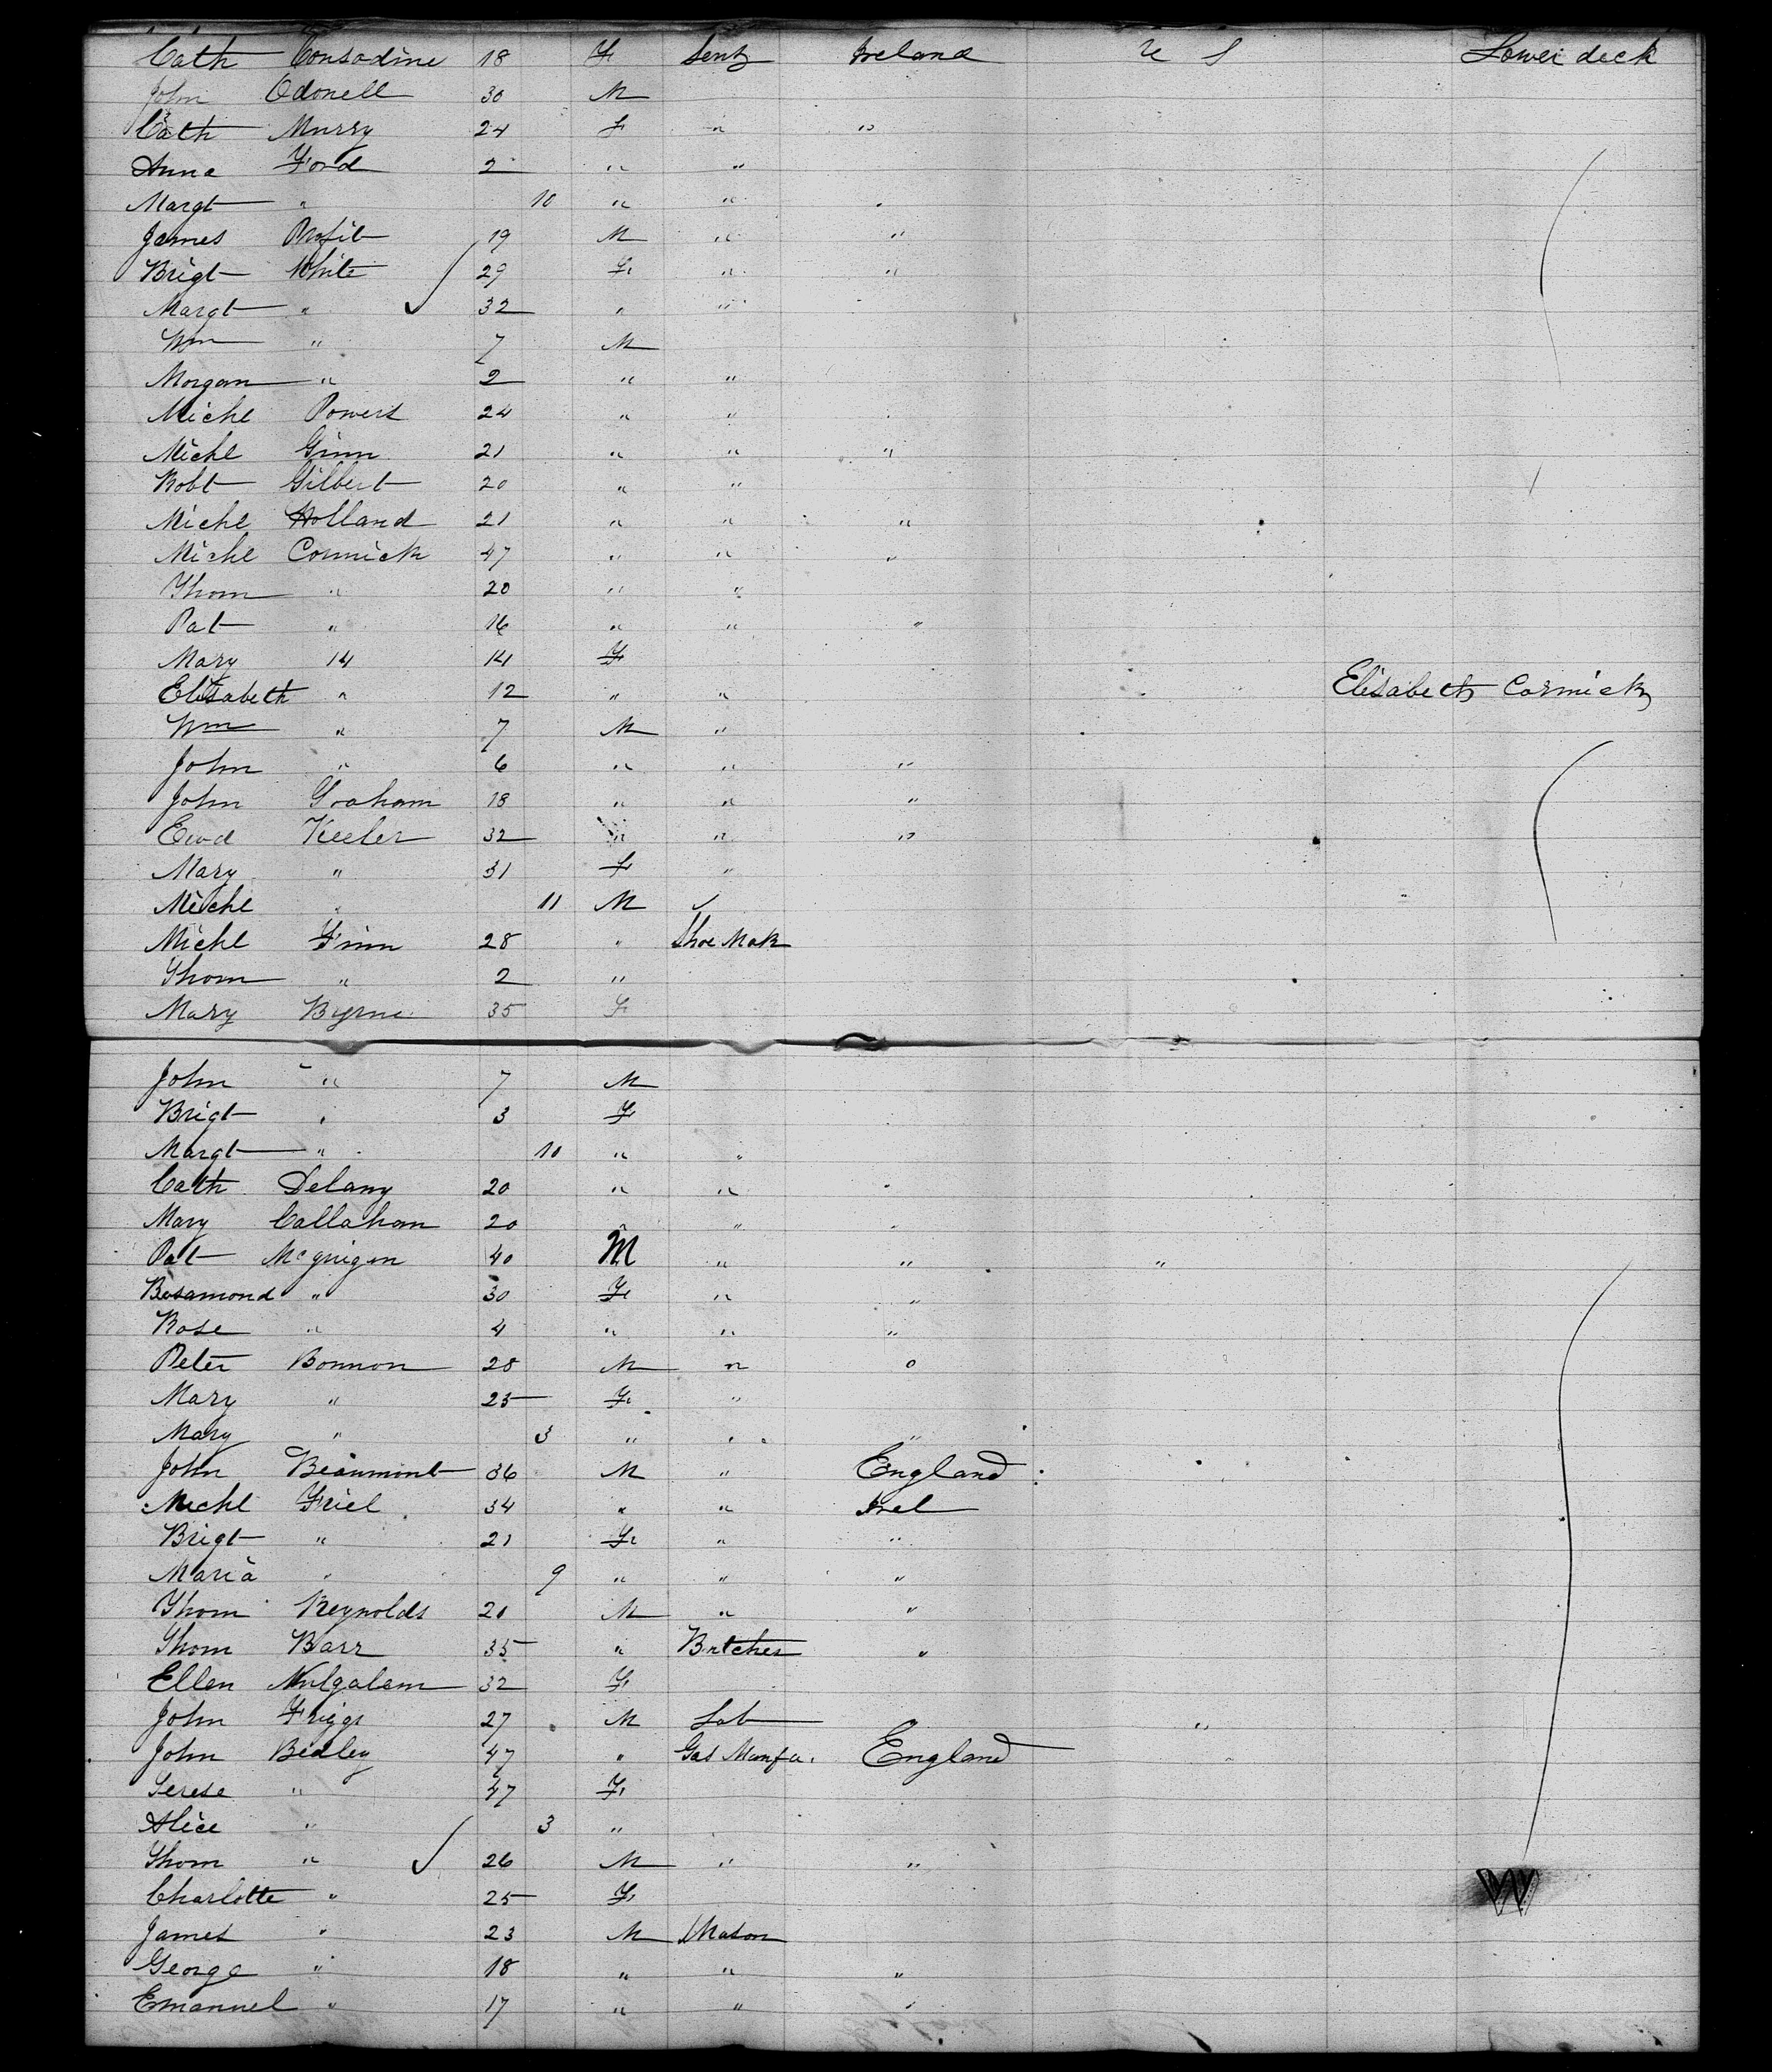 Cath Consodine 18 F Ireland U S Lower deck
John Odonell 30 M
Cath Murry 24 F " "
Anna Ford 2 " "
Margt " 10 " " "
James Profit 19 M " "
Brigt White 29 F " "
Margt " 32 " "
Wm " 7 M
Morgan " 2 " "
Michl Powers 24 " "
Michl Ginn 21 " " "
Robt Gilbert 20 " "
Michl Holland 21 " " "
Michl Cormick 47 " " "
Thom " 20 " "
Pat " 16 " " "
Mary 14 14 F
Elisabeth " 12 " " Elisabeth Cormick
Wm " 7 M "
John " 6 " " "
John Graham 18 " " "
Ewd Keeler 32 " " "
Mary " 31 F "
Michl " 11 M "
Michl Finn 28 " Shoe Mak
Thom " 2 "
Mary Byrne 35 F
John " 7 M
Brigt " 3 F
Margt " 10 " "
Cath Delany 20 " " "
Mary Callahan 20 " "
Pat McGuigen 40 M " " "
Rosamond " 30 F " "
Rose " 4 " " "
Peter Bonnon 28 M " "
Mary " 25 F "
Mary " 3 " " "
John Beaumont 36 M " England
Michl Friel 34 " " Irel
Brigt " 21 F " "
Maria " 9 " " "
Thom Reynolds 20 M " "
Thom Barr 35 " Butcher "
Ellen Mulgalem 32 F
John Friggs 27 M Lab "
John Bedley 47 " Gas Manfa. England
Terese " 47 F
Alice " 3 "
Thom " 26 M " "
Charlotte " 25 F
James " 23 M Mason
George " 18 " " "
Emanuel " 17 " " "
W